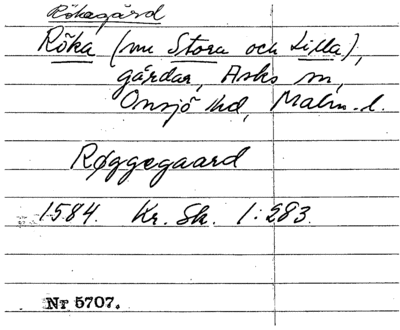 Rökagård
Röka (nu Stora och Lilla),
gårdar, Asks sn,
Onsjö hd, Malm. l.
Røggegaard
1584. Kr. Sk. 1:283.
Nr 5707.